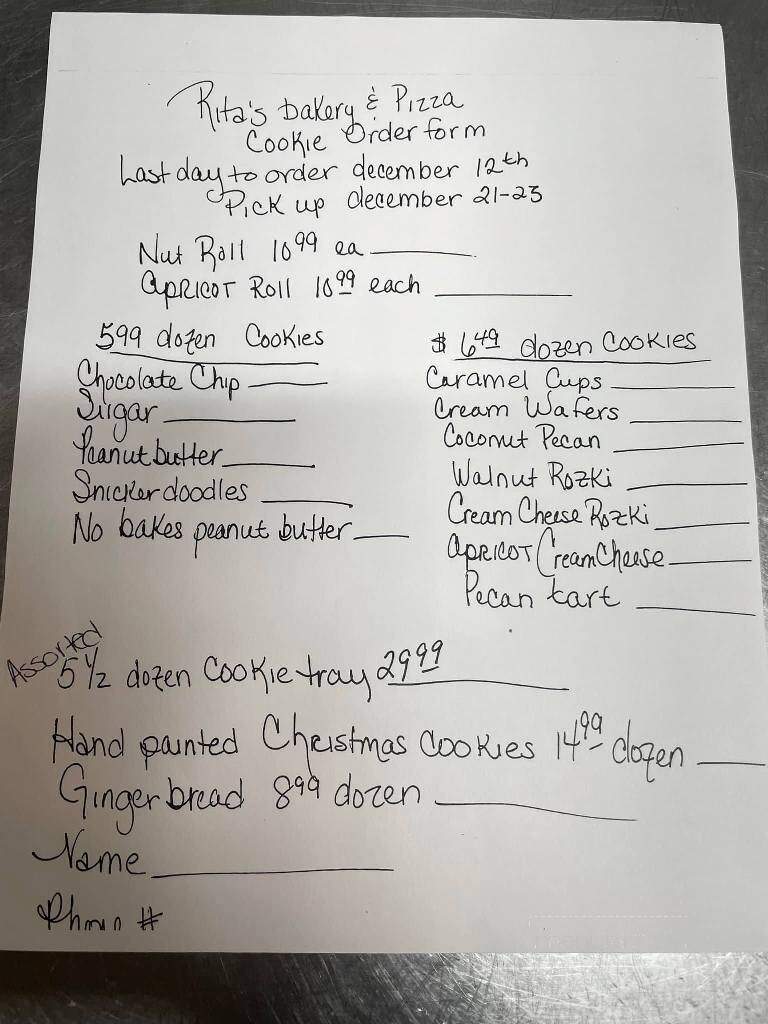 Rita's bakery & Pizza
Cookie Order form
Last day to order december 12th
Pick up december 21-23
Nut Roll 10 99 ea
apricot Roll 10 99 each
5 99 dozen Cookies
Chocolate Chip
Sugar
Peanut butter
Snickerdoodles
No bakes peanut butter
$ 6 49 dozen Cookies
Caramel Cups
Cream Wafers
Coconut Pecan
Walnut Rozki
Cream Cheese Rozki
apricot Cream Cheese
Pecan tart
Assorted
5 1/2 dozen Cookie tray 29 99
Hand painted Christmas Cookies 14 99 dozen
Gingerbread 8 99 dozen
Name
Phone #